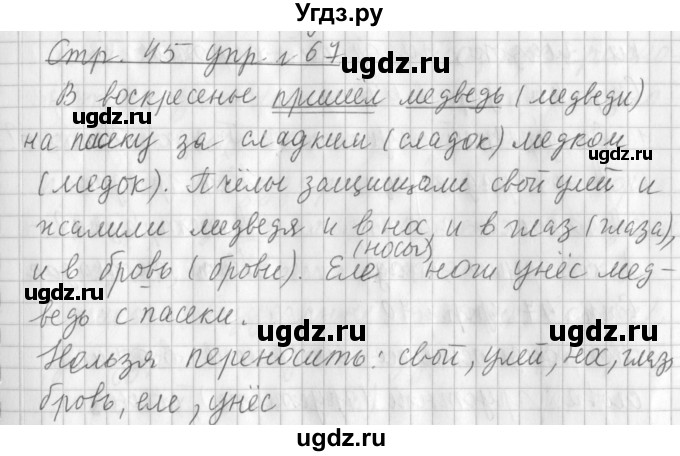 Угдз.ру
Стр. 45 упр. 67
ugdz.ru
В воскресенье пришёл медведь (медведи)
ugdz.ru ugdz.ru
на пасеку за сладким (сладок) медком
ugdz.ru
(медок). Пчёлы защищали свой улей и
жалили медведя и в нос, и в глаз (глаза),
(носы)
и в бровь (брови). Еле ноги унёс мед-
ugdz.ru ugdz.ru
ведь с пасеки.
ugdz.ru ugdz.ru
Нельзя переносить: свой, улей, нос, глаз,
бровь, еле, унёс
ugdz.ru